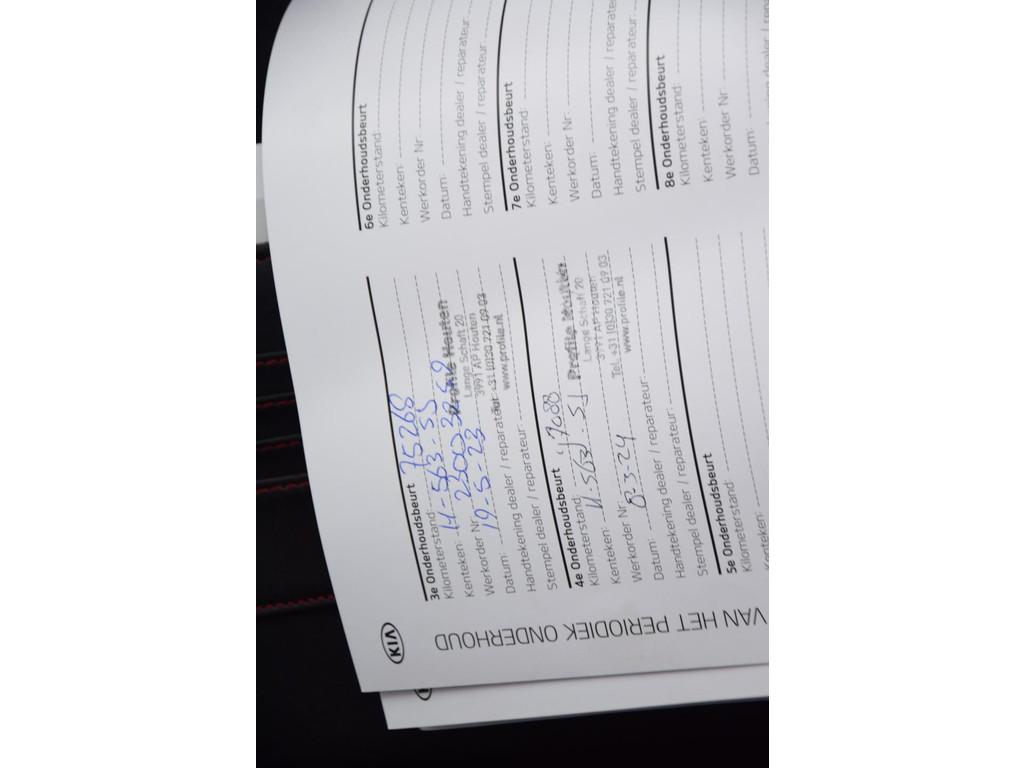 KIA
VAN HET PERIODIEK ONDERHOUD
3e Onderhoudsbeurt
Kilometerstand: 75268
Kenteken: H-563-SS
Werkorder Nr:
Datum: 19-5-23
Handtekening dealer / reparateur:
Stempel dealer / reparateur:
Profile Houten
Lange Schaft 20
3991 AP Houten
Tel. +31 (0)30 721 09 03
www.profile.nl
4e Onderhoudsbeurt
Kilometerstand:
Kenteken:
Werkorder Nr:
Datum: 8-3-24
Handtekening dealer / reparateur:
Stempel dealer / reparateur:
Profile Houten
Lange Schaft 20
3991 AP Houten
Tel. +31 (0)30 721 09 03
www.profile.nl
5e Onderhoudsbeurt
Kilometerstand:
Kenteken:
6e Onderhoudsbeurt
Kilometerstand:
Kenteken:
Werkorder Nr:
Datum:
Handtekening dealer / reparateur:
Stempel dealer / reparateur:
7e Onderhoudsbeurt
Kilometerstand:
Kenteken:
Werkorder Nr:
Datum:
Handtekening dealer / reparateur
Stempel dealer / reparateur:
8e Onderhoudsbeurt
Kilometerstand:
Kenteken:
Werkorder Nr:
Datum: